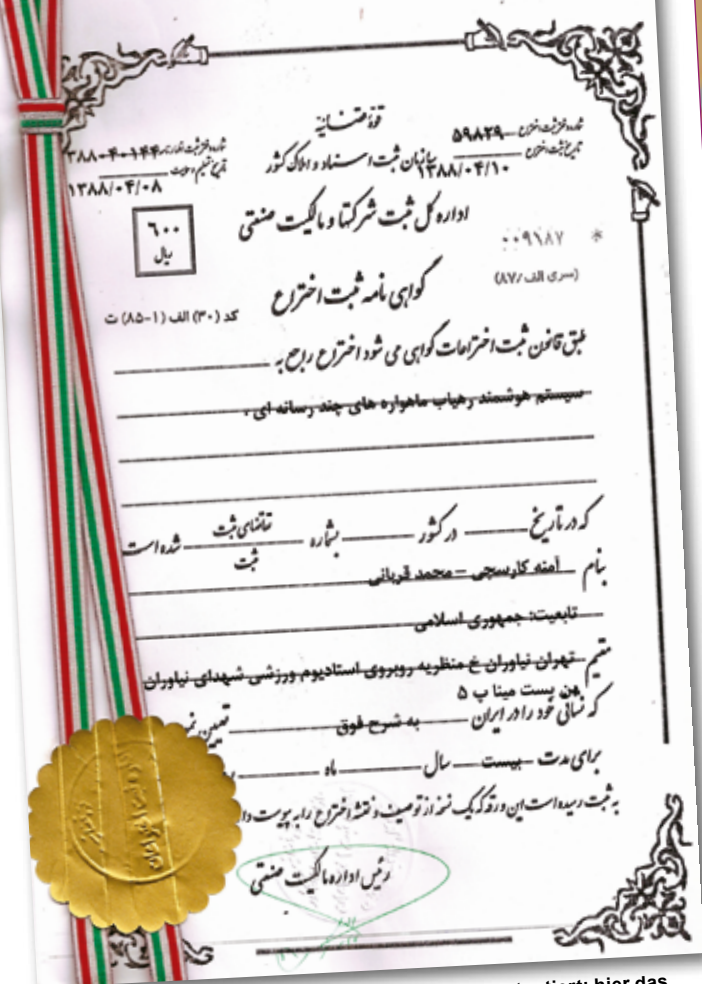 قوهٔ قضائیه
شماره دفتر ثبت اختراع ۵۹۸۲۹
تاریخ ثبت اختراع ۱۳۸۸/۰۴/۱۰
سازمان ثبت اسناد و املاک کشور
شماره دفتر ثبت اظهارنامه
۱۳۸۸/۰۴/۰۸
اداره کل ثبت شرکتها و مالکیت صنعتی
۶۰۰
ریال
۰۰۹۱۸۷ *
(سری الف /۸۷)
گواهی نامه ثبت اختراع
کد (۳۰) الف (۱-۸۵) ت
طبق قانون ثبت اختراعات گواهی می شود اختراع راجع به
سیستم هوشمند رهیاب ماهواره های چند رسانه ای .
که در تاریخ در کشور بشماره تقاضای ثبت شده است
ثبت
بنام آمنه کارسجی – محمد قربانی
تابعیت: جمهوری اسلامی
مقیم تهران نیاوران خ منظریه روبروی استادیوم ورزشی شهدای نیاوران
بن بست مینا پ ۵
که نشانی خود را در ایران به شرح فوق تعیین
برای مدت بیست سال ماه
به ثبت رسیده است این ورقه که یک نسخه از توصیف و نقشه اختراع را به پیوست
رئیس اداره مالکیت صنعتی
hier das